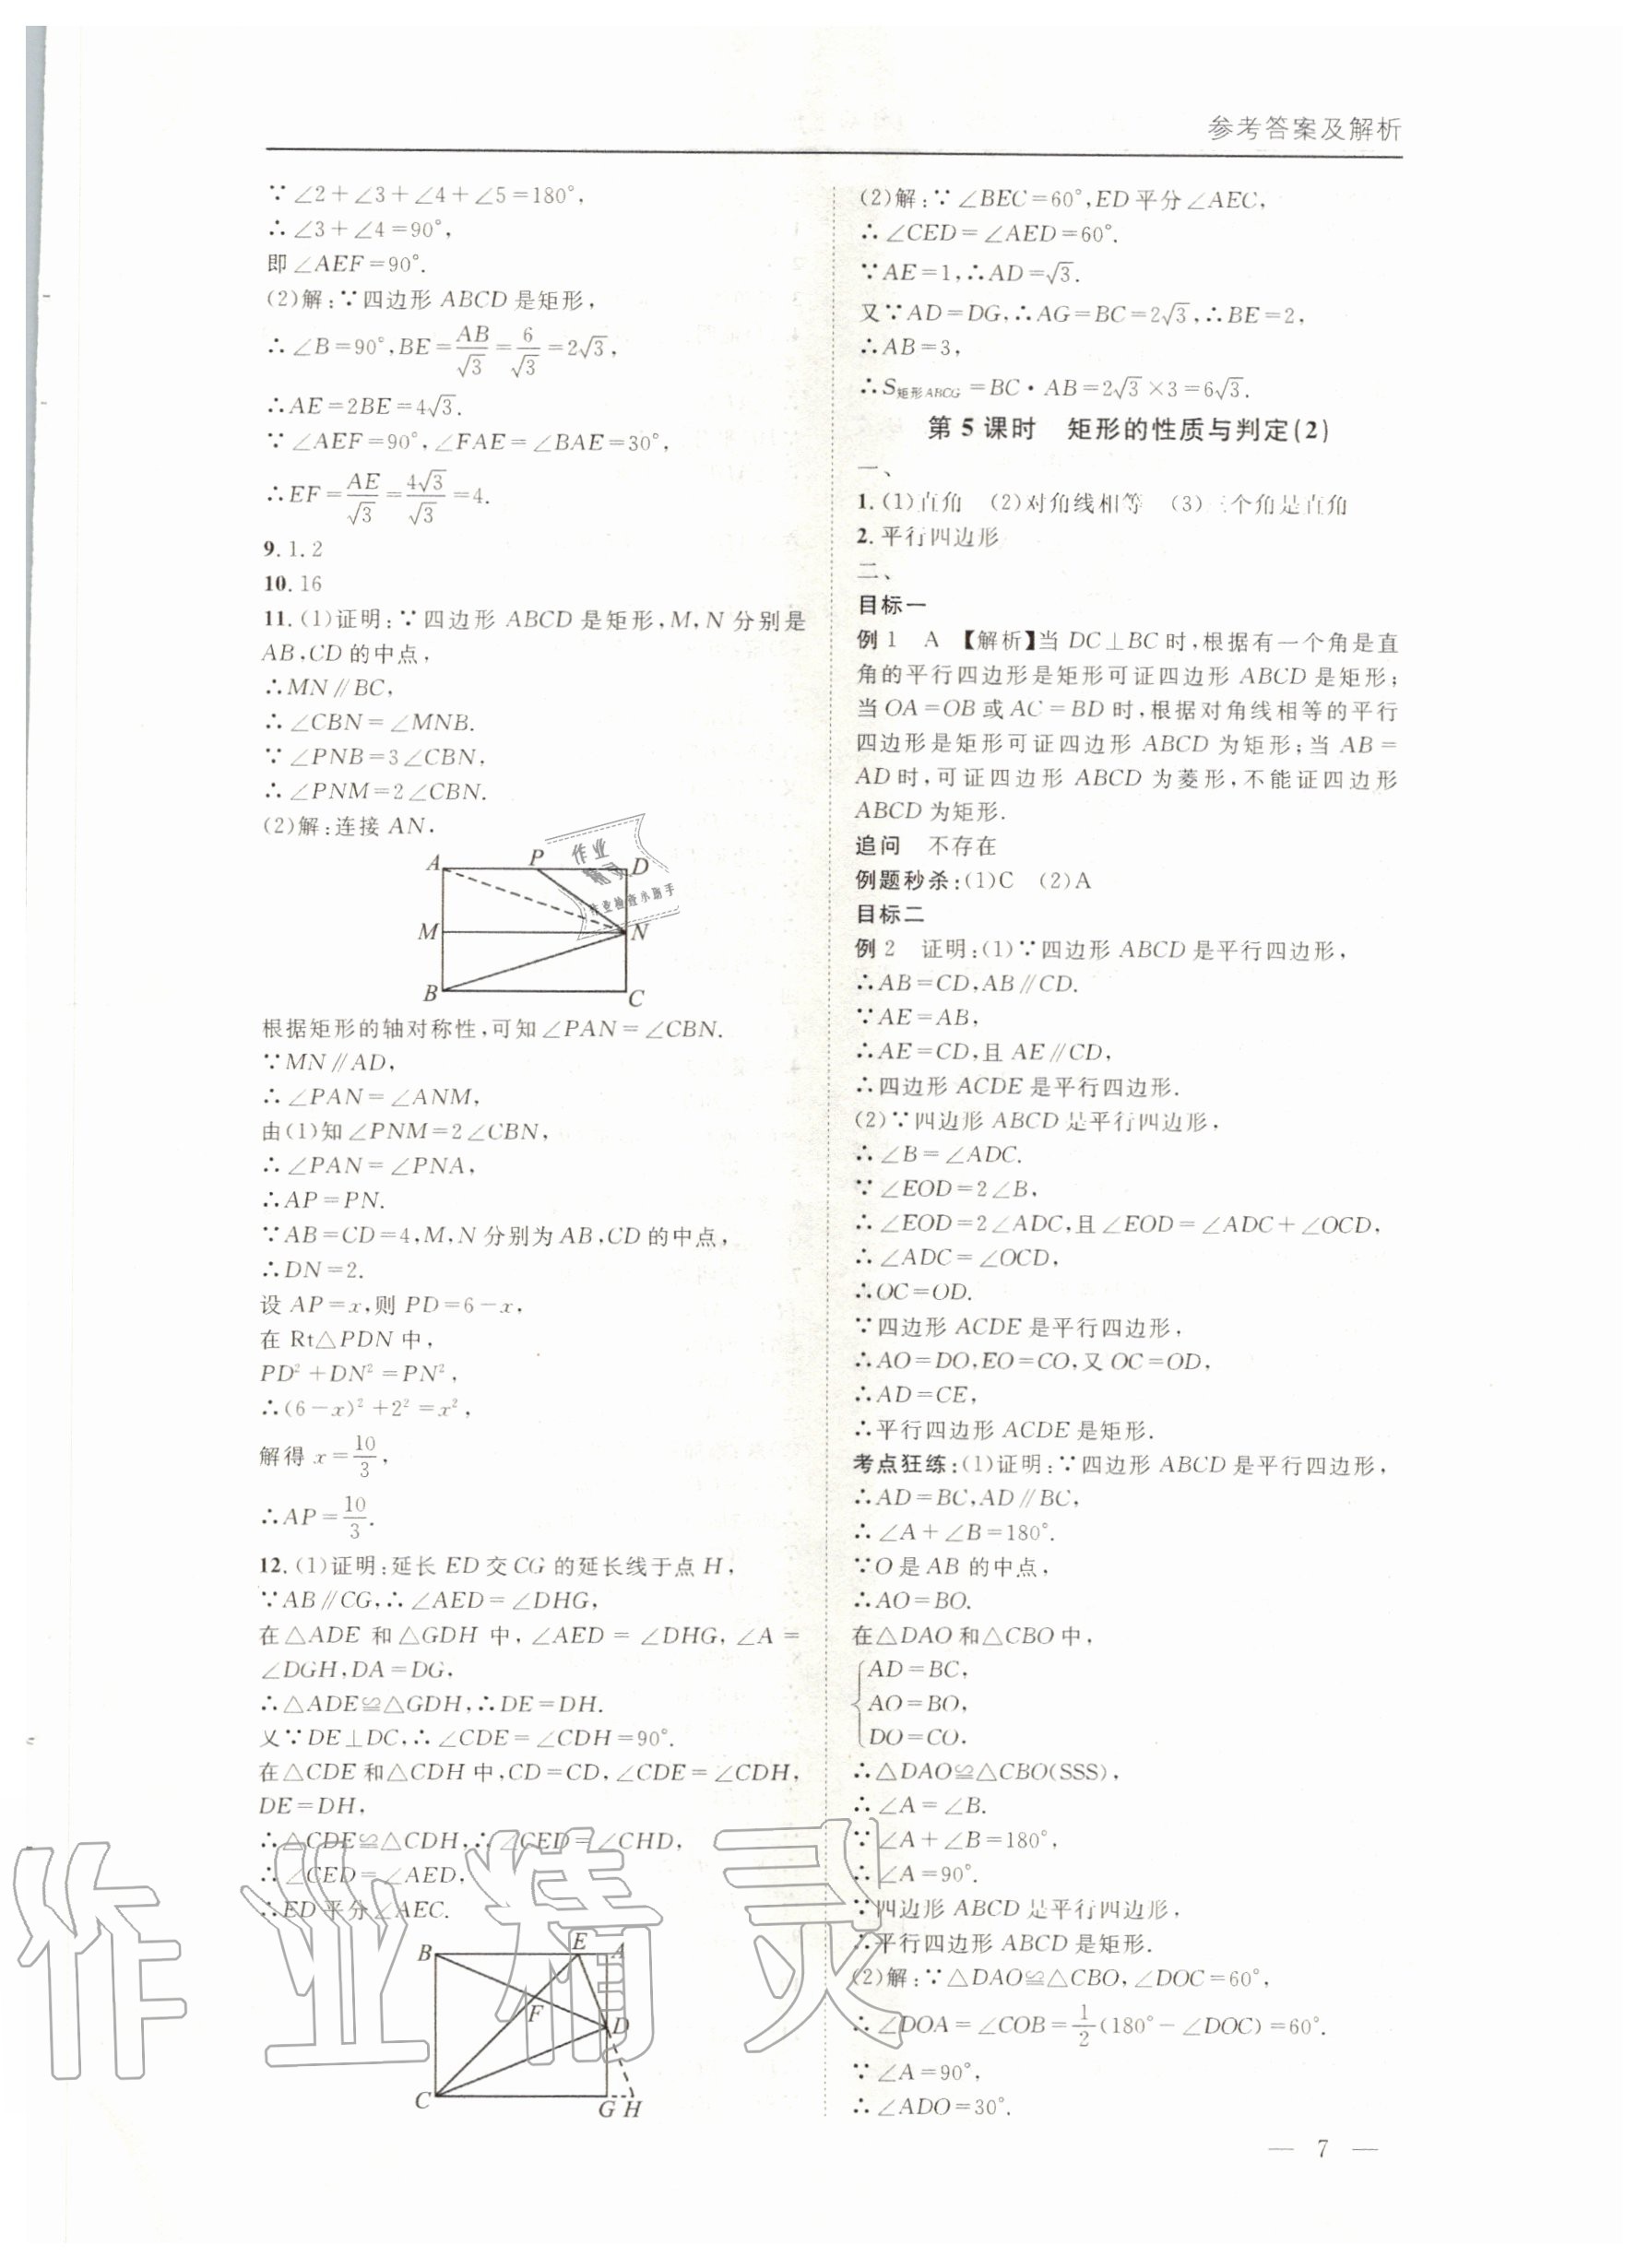 参考答案及解析
∵∠2+∠3+∠4+∠5=180°,
∴∠3+∠4=90°,
即∠AEF=90°.
(2)解:∵四边形 ABCD 是矩形,
∴∠B=90°,BE=AB/√3=6/√3=2√3,
∴AE=2BE=4√3.
∵∠AEF=90°,∠FAE=∠BAE=30°,
∴EF=AE/√3=4√3/√3=4.
9. 1.2
10. 16
11. (1)证明:∵四边形 ABCD 是矩形,M,N 分别是
AB,CD 的中点,
∴MN∥BC,
∴∠CBN=∠MNB.
∵∠PNB=3∠CBN,
∴∠PNM=2∠CBN.
(2)解:连接 AN.
A P D
M N
B C
作业
作业检查小助手
根据矩形的轴对称性,可知∠PAN=∠CBN.
∵MN∥AD,
∴∠PAN=∠ANM,
由(1)知∠PNM=2∠CBN,
∴∠PAN=∠PNA,
∴AP=PN.
∵AB=CD=4,M,N 分别为 AB,CD 的中点,
∴DN=2.
设 AP=x,则 PD=6-x,
在 Rt△PDN 中,
PD²+DN²=PN²,
∴(6-x)²+2²=x²,
解得 x=10/3,
∴AP=10/3.
12. (1)证明:延长 ED 交 CG 的延长线于点 H,
∵AB∥CG,∴∠AED=∠DHG,
在△ADE 和△GDH 中,∠AED=∠DHG,∠A=
∠DGH,DA=DG,
∴△ADE≌△GDH,∴DE=DH.
又∵DE⊥DC,∴∠CDE=∠CDH=90°.
在△CDE 和△CDH 中,CD=CD,∠CDE=∠CDH,
DE=DH,
∴△CDE≌△CDH,∴∠CED=∠CHD,
∴∠CED=∠AED,
∴ED 平分∠AEC.
B E A
F
D
C G H
(2)解:∵∠BEC=60°,ED 平分∠AEC,
∴∠CED=∠AED=60°.
∵AE=1,∴AD=√3.
又∵AD=DG,∴AG=BC=2√3,∴BE=2,
∴AB=3,
∴S矩形ABCG=BC·AB=2√3×3=6√3.
第 5 课时 矩形的性质与判定(2)
一、
1. (1)直角 (2)对角线相等 (3)三个角是直角
2. 平行四边形
二、
目标一
例 1 A 【解析】当 DC⊥BC 时,根据有一个角是直
角的平行四边形是矩形可证四边形 ABCD 是矩形;
当 OA=OB 或 AC=BD 时,根据对角线相等的平行
四边形是矩形可证四边形 ABCD 为矩形;当 AB=
AD 时,可证四边形 ABCD 为菱形,不能证四边形
ABCD 为矩形.
追问 不存在
例题秒杀:(1)C (2)A
目标二
例 2 证明:(1)∵四边形 ABCD 是平行四边形,
∴AB=CD,AB∥CD.
∵AE=AB,
∴AE=CD,且 AE∥CD,
∴四边形 ACDE 是平行四边形.
(2)∵四边形 ABCD 是平行四边形,
∴∠B=∠ADC.
∵∠EOD=2∠B,
∴∠EOD=2∠ADC,且∠EOD=∠ADC+∠OCD,
∴∠ADC=∠OCD,
∴OC=OD.
∵四边形 ACDE 是平行四边形,
∴AO=DO,EO=CO,又 OC=OD,
∴AD=CE,
∴平行四边形 ACDE 是矩形.
考点狂练:(1)证明:∵四边形 ABCD 是平行四边形,
∴AD=BC,AD∥BC,
∴∠A+∠B=180°.
∵O 是 AB 的中点,
∴AO=BO.
在△DAO 和△CBO 中,
AD=BC,
AO=BO,
DO=CO.
∴△DAO≌△CBO(SSS),
∴∠A=∠B.
∵∠A+∠B=180°,
∴∠A=90°.
∵四边形 ABCD 是平行四边形,
∴平行四边形 ABCD 是矩形.
(2)解:∵△DAO≌△CBO,∠DOC=60°,
∴∠DOA=∠COB=1/2(180°-∠DOC)=60°.
∵∠A=90°,
∴∠ADO=30°.
作业精灵
— 7 —